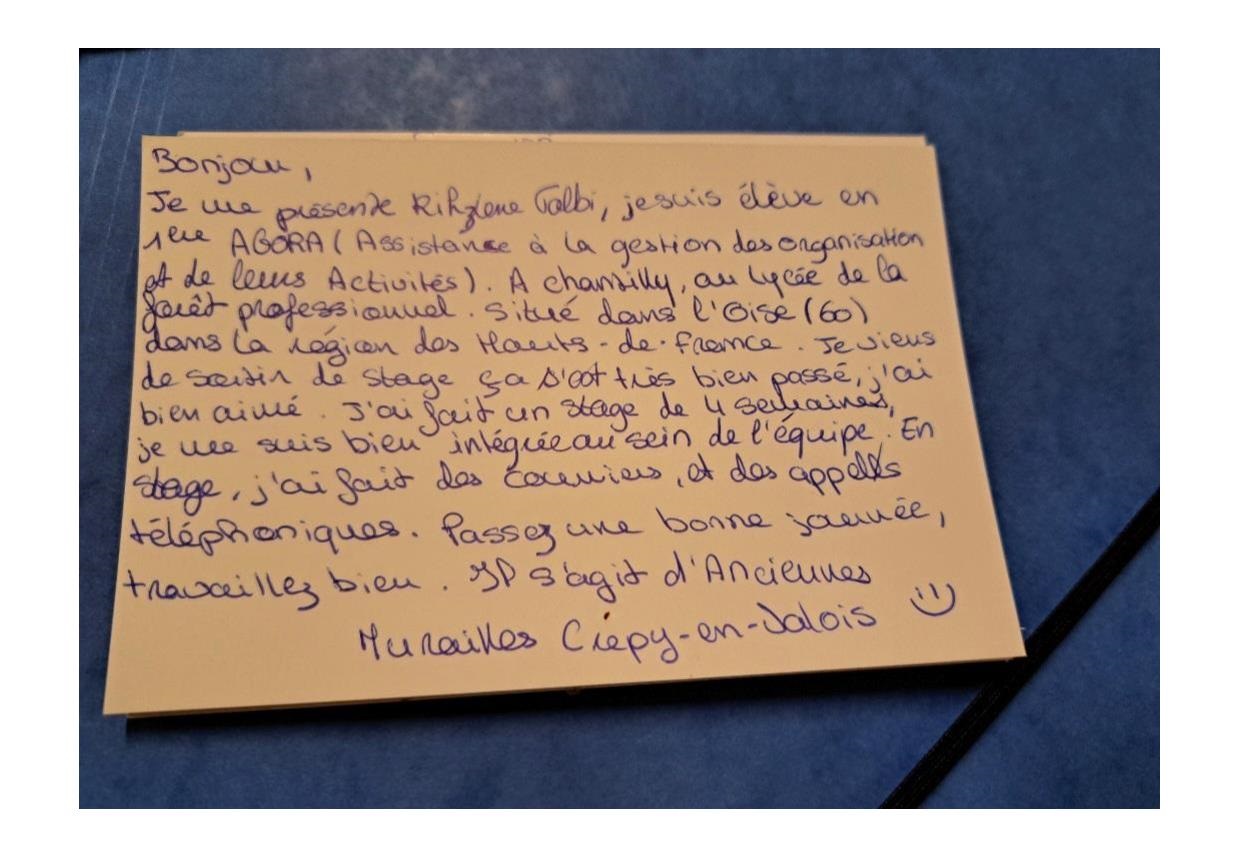 Bonjour,
Je me présente Rihziene Talbi, je suis élève en
1ère AGORA (Assistance à la gestion des organisation
et de leurs Activités). A chansilly, au lycée de la
forêt professionnel. Situé dans l'Oise (60)
dans la région des Hauts-de-france. Je viens
de sortir de stage ça s'est très bien passé, j'ai
bien aimé. J'ai fait un stage de 4 semaines,
je me suis bien intégrée au sein de l'équipe. En
stage, j'ai fait des courriers, et des appells
téléphoniques. Passez une bonne journée,
travaillez bien. Il s'agit d'Anciennes
Murailles Crépy-en-Valois